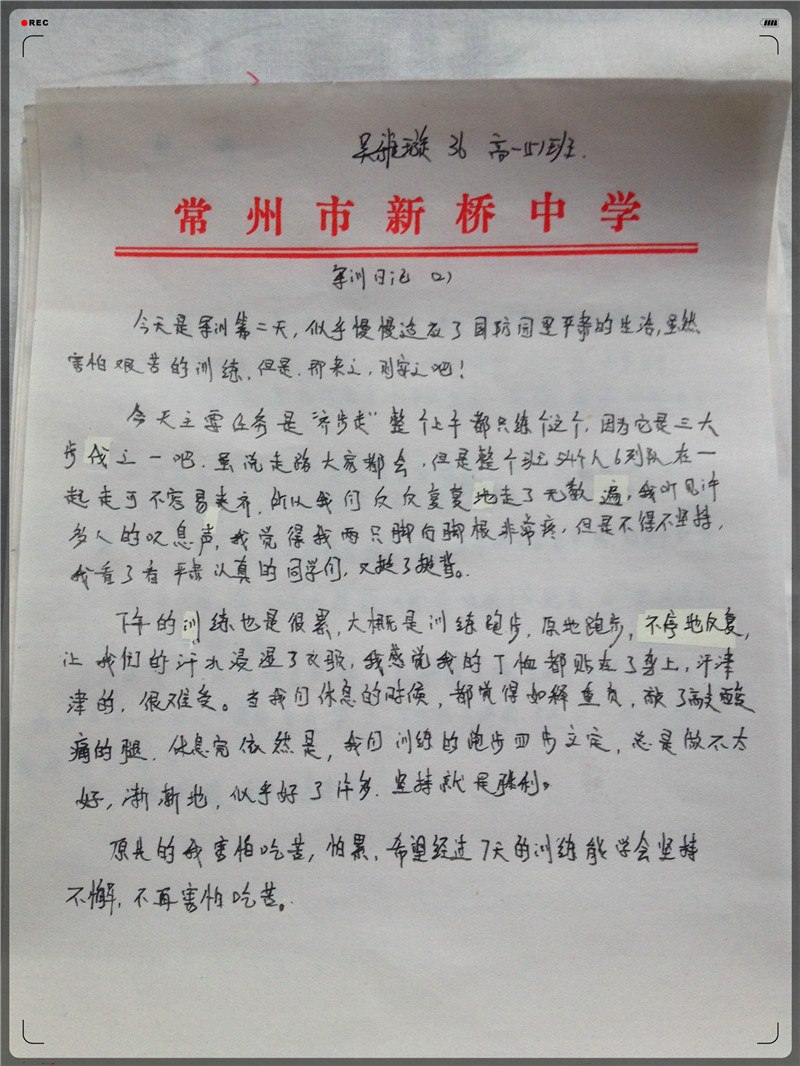 REC
吴雅璇 36 高一(5)班.
常州市新桥中学
军训日记 (2)
今天是军训第二天,似乎慢慢适应了国防园里严肃的生活,虽然
害怕艰苦的训练,但是.既来之,则安之吧!
今天主要任务是"齐步走"整个上午都只练个这个,因为它是三大
步伐之一吧.虽说走路大家都会,但是整个班54个人6列队在一
起走可不容易来齐,所以我们反反复复地走了无数遍,我听见许
多人的叹息声,我觉得我两只脚的脚根非常疼,但是不得不坚持,
我看了看严肃认真的同学们,又挺了挺背。
下午的训练也是很累,大概是训练跑步,原地跑步,不停地反复,
让我们的汗水浸湿了衣服,我感觉我的T恤都贴在了身上,汗津
津的,很难受。当我们休息的时候,都觉得如释重负,敲了敲酸
痛的腿.休息完依然是,我们训练的跑步四步立定,总是做不太
好,渐渐地,似乎好了许多.坚持就是胜利。
原先的我害怕吃苦,怕累,希望经过7天的训练能学会坚持
不懈,不再害怕吃苦。